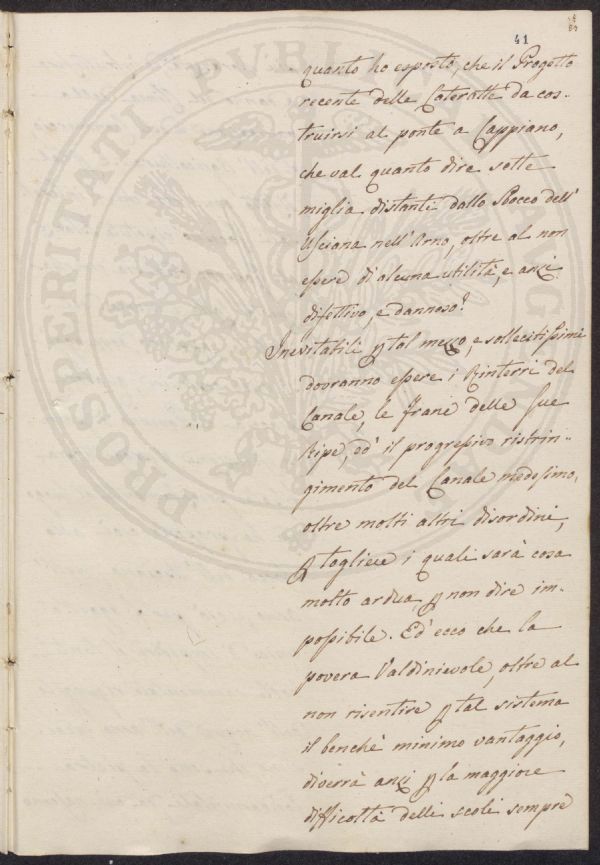 41
quanto ho esposto, che il Progetto
recente delle Cateratte da cos-
truirsi al ponte a Cappiano,
che val quanto dire sette
miglia distanti dallo Sbocco dell'
Usciana nell'Arno, oltre al non
essere di alcuna utilità, e anzi
difettivo, e dannoso?
Inevitabili p tal mezzo, e sollecitissimi
dovranno essere i Rinterri del
Canale, le frane delle sue
Ripe, ed il progressivo ristrin-
gimento del Canale medesimo,
oltre molti altri disordini,
p togliere i quali sarà cosa
molto ardua, p non dire im-
possibile. Ed ecco che la
povera Valdinievole, oltre al
non risentire p tal sistema
il benchè minimo vantaggio,
diverrà anzi p la maggiore
difficoltà delli scoli sempre
PROSPERITATI PVBLICAE AVGENDAE